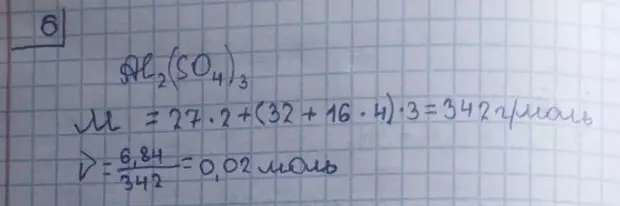 6
Al₂(SO₄)₃
M = 27·2+(32+16·4)·3=342 г/моль
ν=6,84/342=0,02 моль